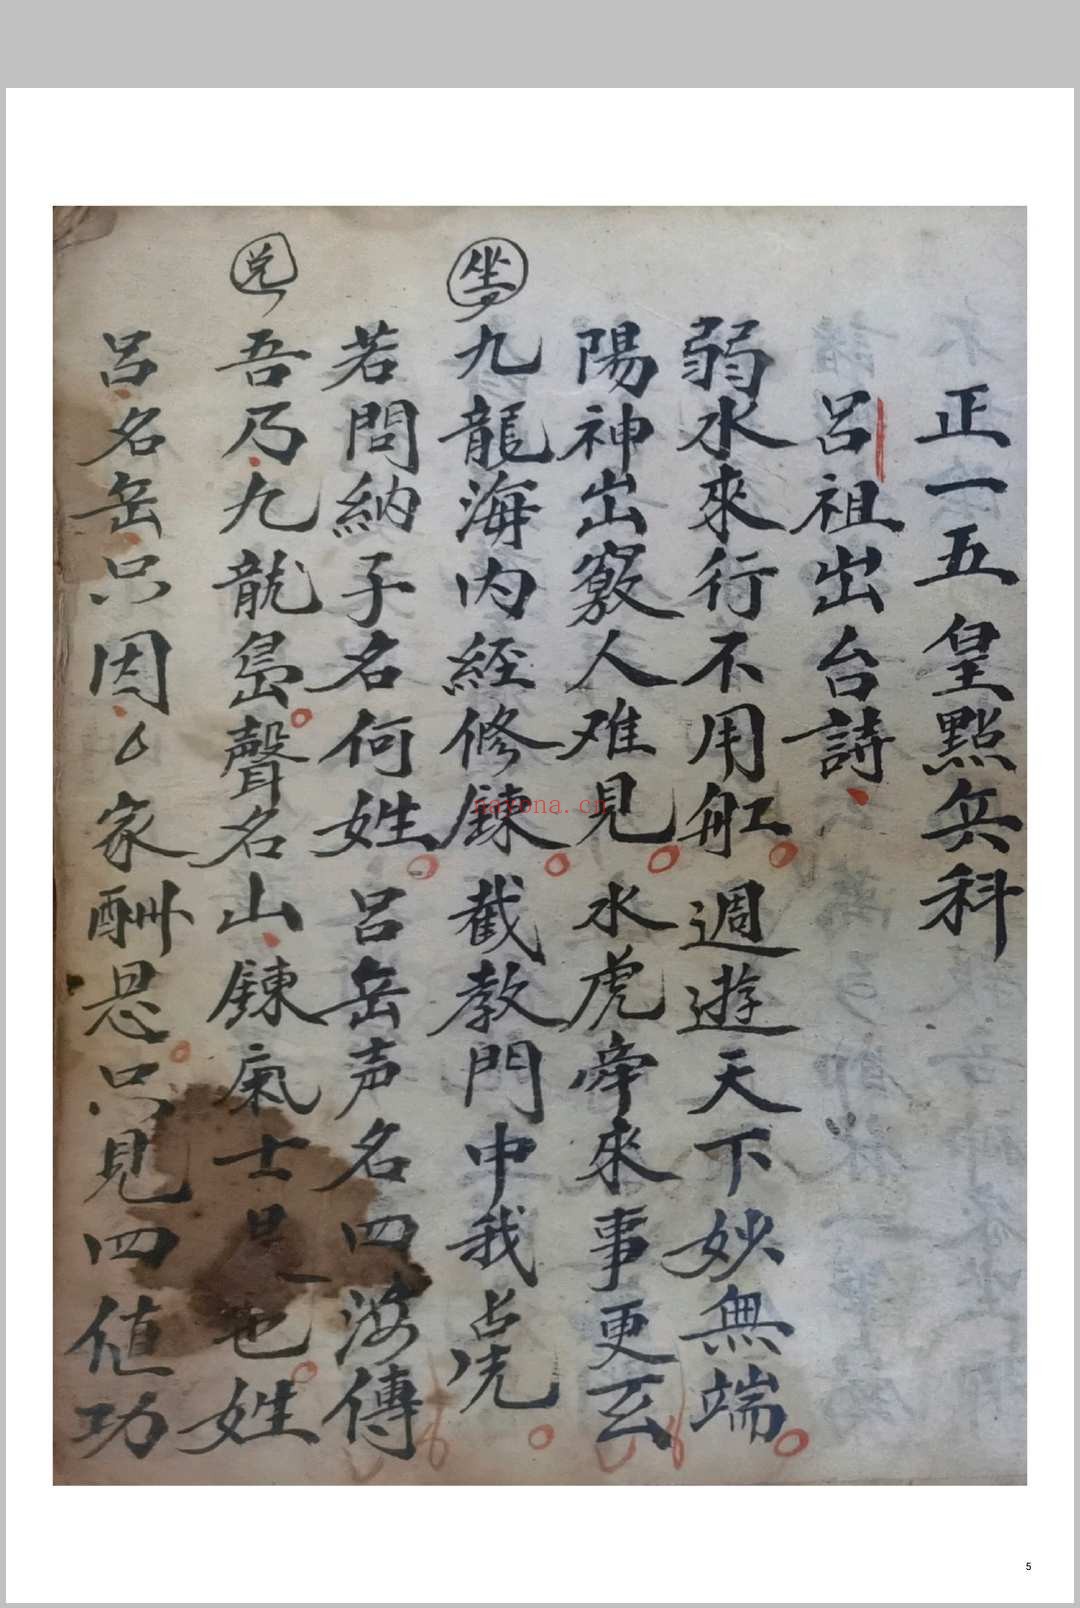 正一五皇點兵科
呂祖出台詩
弱水來行不用舡週遊天下妙無端
陽神出竅人难見水虎牵來事更玄
坐
九龍海内經修鍊截教門中我占先
若問納子名何姓呂岳声名四海傳
兑
吾乃九龍島聲名山鍊氣士是也姓
呂名岳只因家酬恩只見四值功
nayona.cn
5